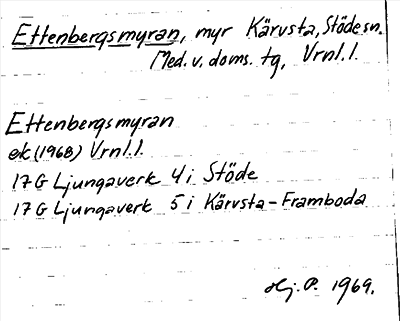 Ettenbergsmyran, myr Kärvsta, Stöde sn.
Med. v. doms. tg, Vrnl. l.
Ettenbergsmyran
ek (1968) Vrnl. l.
17 G Ljungaverk 4 i Stöde
17 G Ljungaverk 5 i Kärvsta - Framboda
Hj. P. 1969.